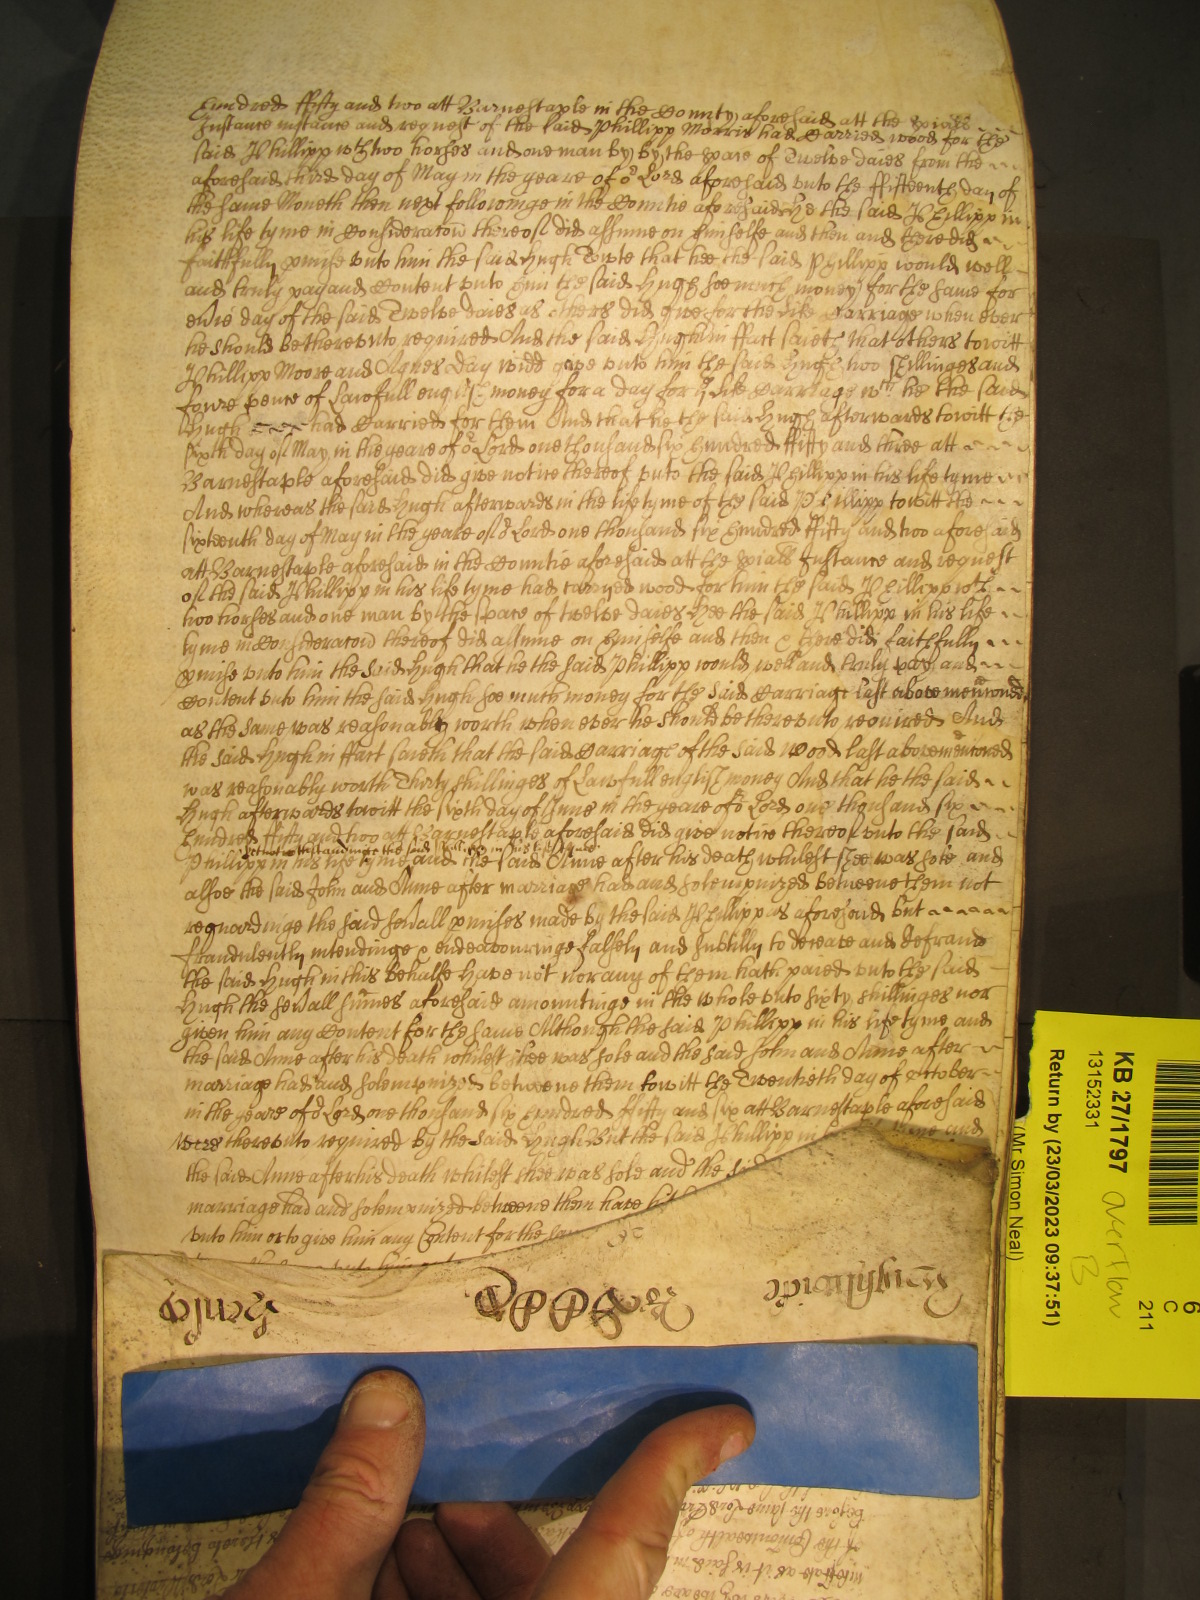 hundred ffifty and two att Barnestaple in the County aforesaid att the spiall
Instance instance and request of the said Phillipp Morris had Carried wood for the
said Phillipp wth two horses and one man by by the space of Twelve daies from the
aforesaid third day of May in the yeare of or Lord aforesaid vnto the ffifteenth day of
the same Moneth then next followinge in the Countie aforesaid he the said Phillipp in
his life tyme in Consideracon thereof did assume on himselfe and then and there did
faithfully pmise vnto him the said Hugh that hee the said Phillipp would well
and truly pay and Content vnto him the said Hugh soe much money for the same for
evie day of the said Twelve daies as others did give for the like Carriage when ever
he should be therevnto required And the said Hugh in ffact saieth that others towitt
Phillipp Moore and Agnes Day widd gave vnto him the said Hugh two shillinges and
foure pence of Lawfull english money for a day for ye like Carriage wch he the said
Hugh had Carried for them And that he the said Hugh afterwards towitt the
sixth day of May in the yeare of or Lord one thousand six hundred ffifty and three att
Barnestaple aforesaid did give notice thereof vnto the said Phillipp in his life tyme
And whereas the said Hugh afterwards in the life tyme of the said Phillipp towitt the
sixteenth day of May in the yeare of or Lord one thousand six hundred ffifty and two aforesaid
att Barnestaple aforesaid in the Countie aforesaid att the spiall Instance and request
of the said Phillipp in his life tyme had carryed wood for him the said Phillipp wth
two horses and one man by the space of twelve daies hee the said Phillipp in his life
tyme in Consideracon thereof did assume on himselfe and then & there did faithfully
pmise vnto him the said Hugh that he the said Phillipp would well and truly pay and
Content vnto him the said Hugh soe much money for the said Carriage last above menconed
as the same was reasonably worth when ever he should be therevnto required And
the said Hugh in ffact saieth that the said Carriage of the said wood last abovemenconed
was reasonably worth Thirty shillinges of Lawfull english money And that he the said
Hugh afterwards towitt the sixth day of June in the yeare of or Lord one thousand six
hundred ffifty and two att Barnestaple aforesaid did give notice thereof vnto the said
yet notwithstandinge the said Phillipp in his life tyme
Phillipp in his life tyme and the said Anne after his death whilest shee was sole and
alsoe the said John and Anne after marriage had and solempnized betweene them not
reguardinge the said sevall pmises made by the said Phillipp as aforesaid but
fraudulently intendinge & endeavouringe falsely and subtilly to deceave and defraud
the said Hugh in this behalfe have not nor any of them hath paied vnto the said
Hugh the sevall sumes aforesaid amountinge in the whole vnto sixty shillinges nor
given him any Content for the same Although the said Phillipp in his life tyme and
the said Anne after his death whilest shee was sole and the said John and Anne after
marriage had and solempnized betweene them towitt the Twentieth day of October
in the yeare of or Lord one thousand six hundred ffifty and six att Barnestaple aforesaid
were therevnto required by the said Hugh But the said Phillipp in
the said Anne after his death whilest shee was sole and the
marriage had and solempnized betweene them have
vnto him or to give him any Content for the
KB 27/1797
overflow
B
13152331
Return by (23/03/2023 09:37:51)
(Mr Simon Neal)
6
C
211